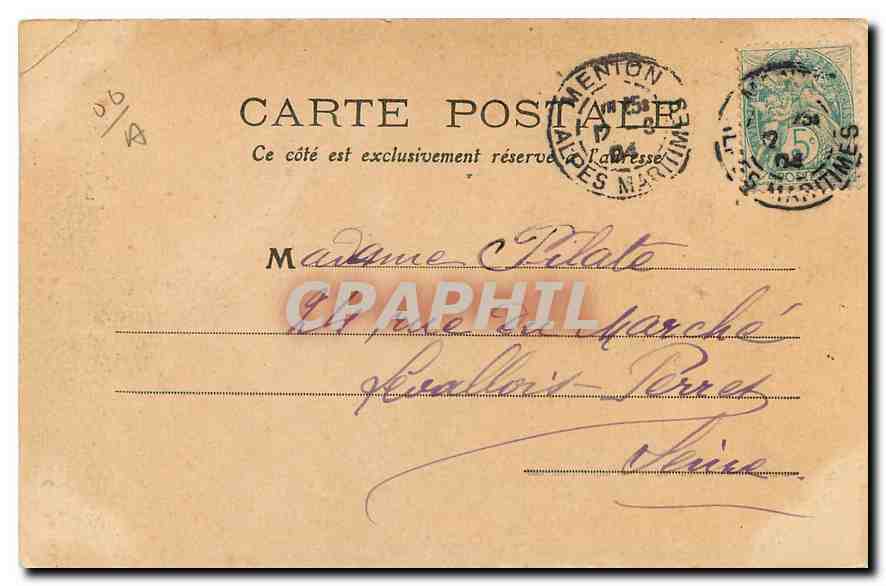 06/A
CARTE POSTALE
Ce côté est exclusivement réservé à l'adresse
MENTON
15 E
04
ALPES MARITIMES
5c
04
ALPES-MARITIMES
Madame Pilate
24 rue du Marché
Levallois-Perret
Seine
CPAPHIL